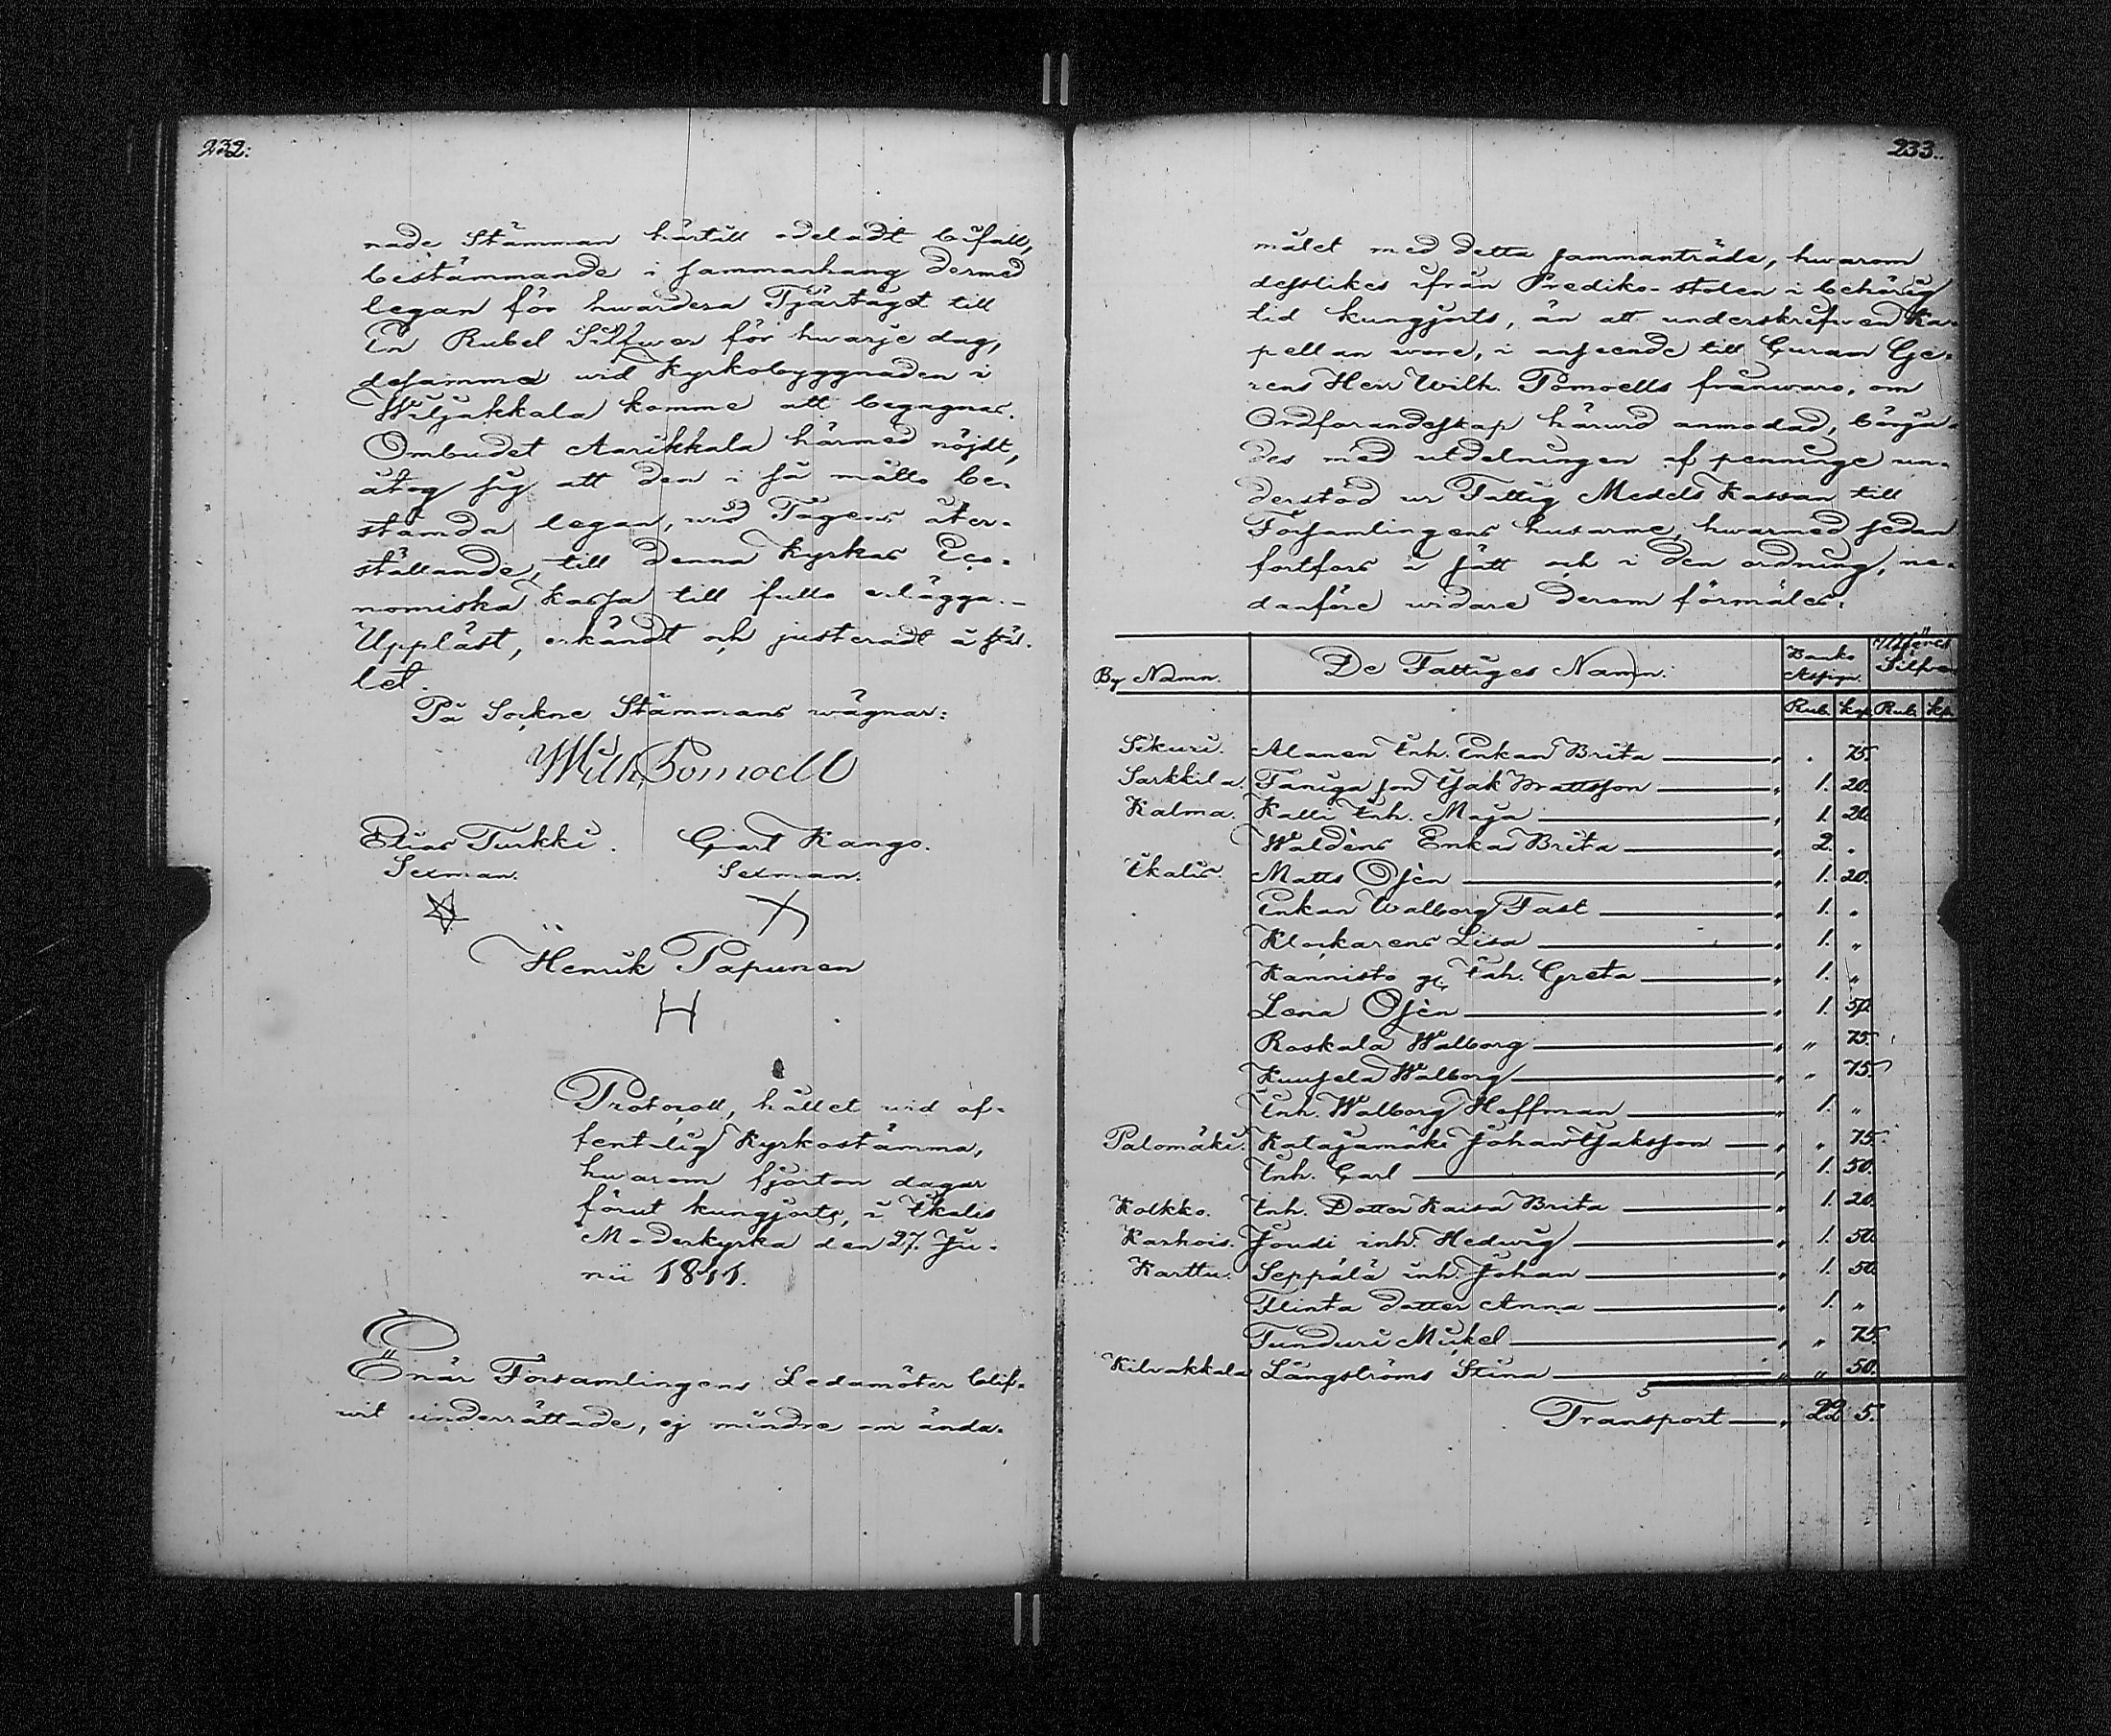 232.
nade Stämman härtill odeladt bifall,
bestämmande i sammanhang dermed
legan för hwardera Tjärtåget till
En Rubel Silfwer för hwarje dag,
desamma wid Kyrkobyggnaden i
Wiljakkala komme att begagnas.
Ombudet Aarikkala härmed nöjdt,
åtog sig att den i så mått be-
stämda legan, wid Tågens åter-
ställande, till denna Kyrkas Eco-
nomiska Kassa till fullo erlägga.
Uppläst, erkändt och justeradt å stäl-
let.
På Sockne Stämmans wägnar:
Wilh. Pomoell
Elias Turkki. Carl Kango.
Sexman. Sexman.
Henrik Papunen
H
Protocoll, hållet wid of-
fentelig Kyrkostämma,
hwarom fjorton dagar
förut kungjorts, i Ikalis
Moderkyrka den 27. Ju-
nii 1841.
Enär Församlingens Ledamöter blif-
wit underrättade, ej mindre om ända-
233.
målet med detta sammanträde, hwarom
desslikes ifrån Predikostolen i behörig
tid kungjorts, än att underskrifwen Ka-
pellan wore, i anseende till Curam Ge-
rens Herr Wilh. Pomoells frånwaro, om
Ordförandeskap härwid anmodad, börja-
des med utdelningen af penninge un-
derstöd ur Fattig Medels Kassan till
Församlingens husarme, hwarmed sedan
fortfors i sätt och i den ordning, ne-
danföre widare derom förmäles:
By Namn. De Fattiges Namn. Banko Assign. Utföres Silfver
Rub. Kop. Rub. Kp.
Sikuri. Alanen Inh. Enkan Brita " . 75.
Sarkkila. Taniga son Isak Mattsson " 1. 20.
Kalma. Kalli Inh. Maja " 1. 20.
Waldéns Enka Brita " 2. "
Ikalis. Matts Osén " 1. 20.
Enkan Walborg Fast " 1. "
Klockarens Lisa " 1. "
Kannisto gl. Inh. Greta " 1. "
Lena Osén " 1. 50.
Roskala Walborg " " 75.
Kuusela Walborg " " 75.
Inh. Walborg Hoffman " 1. "
Palomäki. Katajamäki Johan Isaksson " " 75.
Inh. Carl " 1. 50.
Kolkko. Inh. Dotter Kaisa Brita " 1. 20.
Karhois. Joudi inh. Hedwig " 1. 50.
Karttu. Seppälä inh. Johan " 1. 50.
Flinta dotter Anna " 1. "
Tunduri Mikel " " 75.
Kilvakkala Långströms Stina " " 50.
Transport " 22 5.